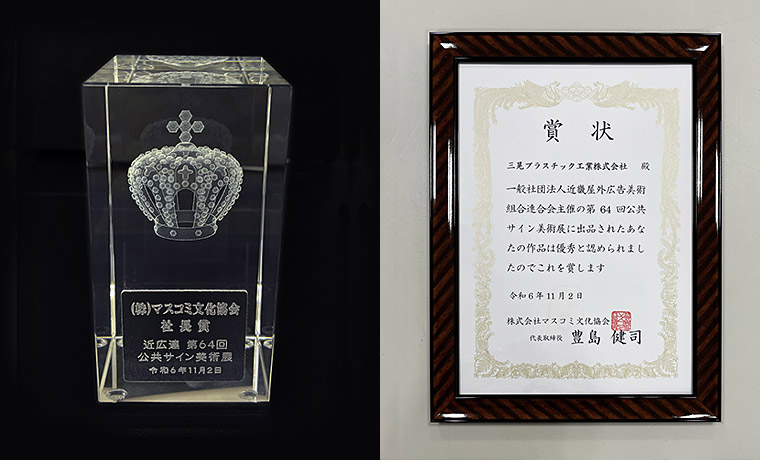 (株)マスコミ文化協会
社長賞
近広連 第64回
公共サイン美術展
令和6年11月2日
賞状
三晃プラスチック工業株式会社 殿
一般社団法人近畿屋外広告美術
組合連合会主催の第64回公共
サイン美術展に出品されたあな
たの作品は優秀と認められまし
たのでこれを賞します
令和6年11月2日
株式会社マスコミ文化協会
代表取締役 豊島 健司